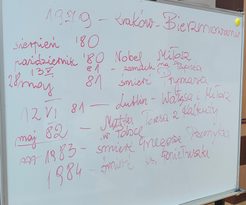 1979 - Kraków - Bierzmowanie
sierpień '80
październik '80 Nobel Miłosz
13 V 81 - zamach na Papieża
28 maj 81 śmierć Prymasa
12 VI 81 - Lublin - Wałęsa i Miłosz
maj 82 - Matka Teresa z Kalkuty
w Polsce
1983 - śmierć Grzegorza Przemyka
1984 - śmierć ks. Popiełuszki